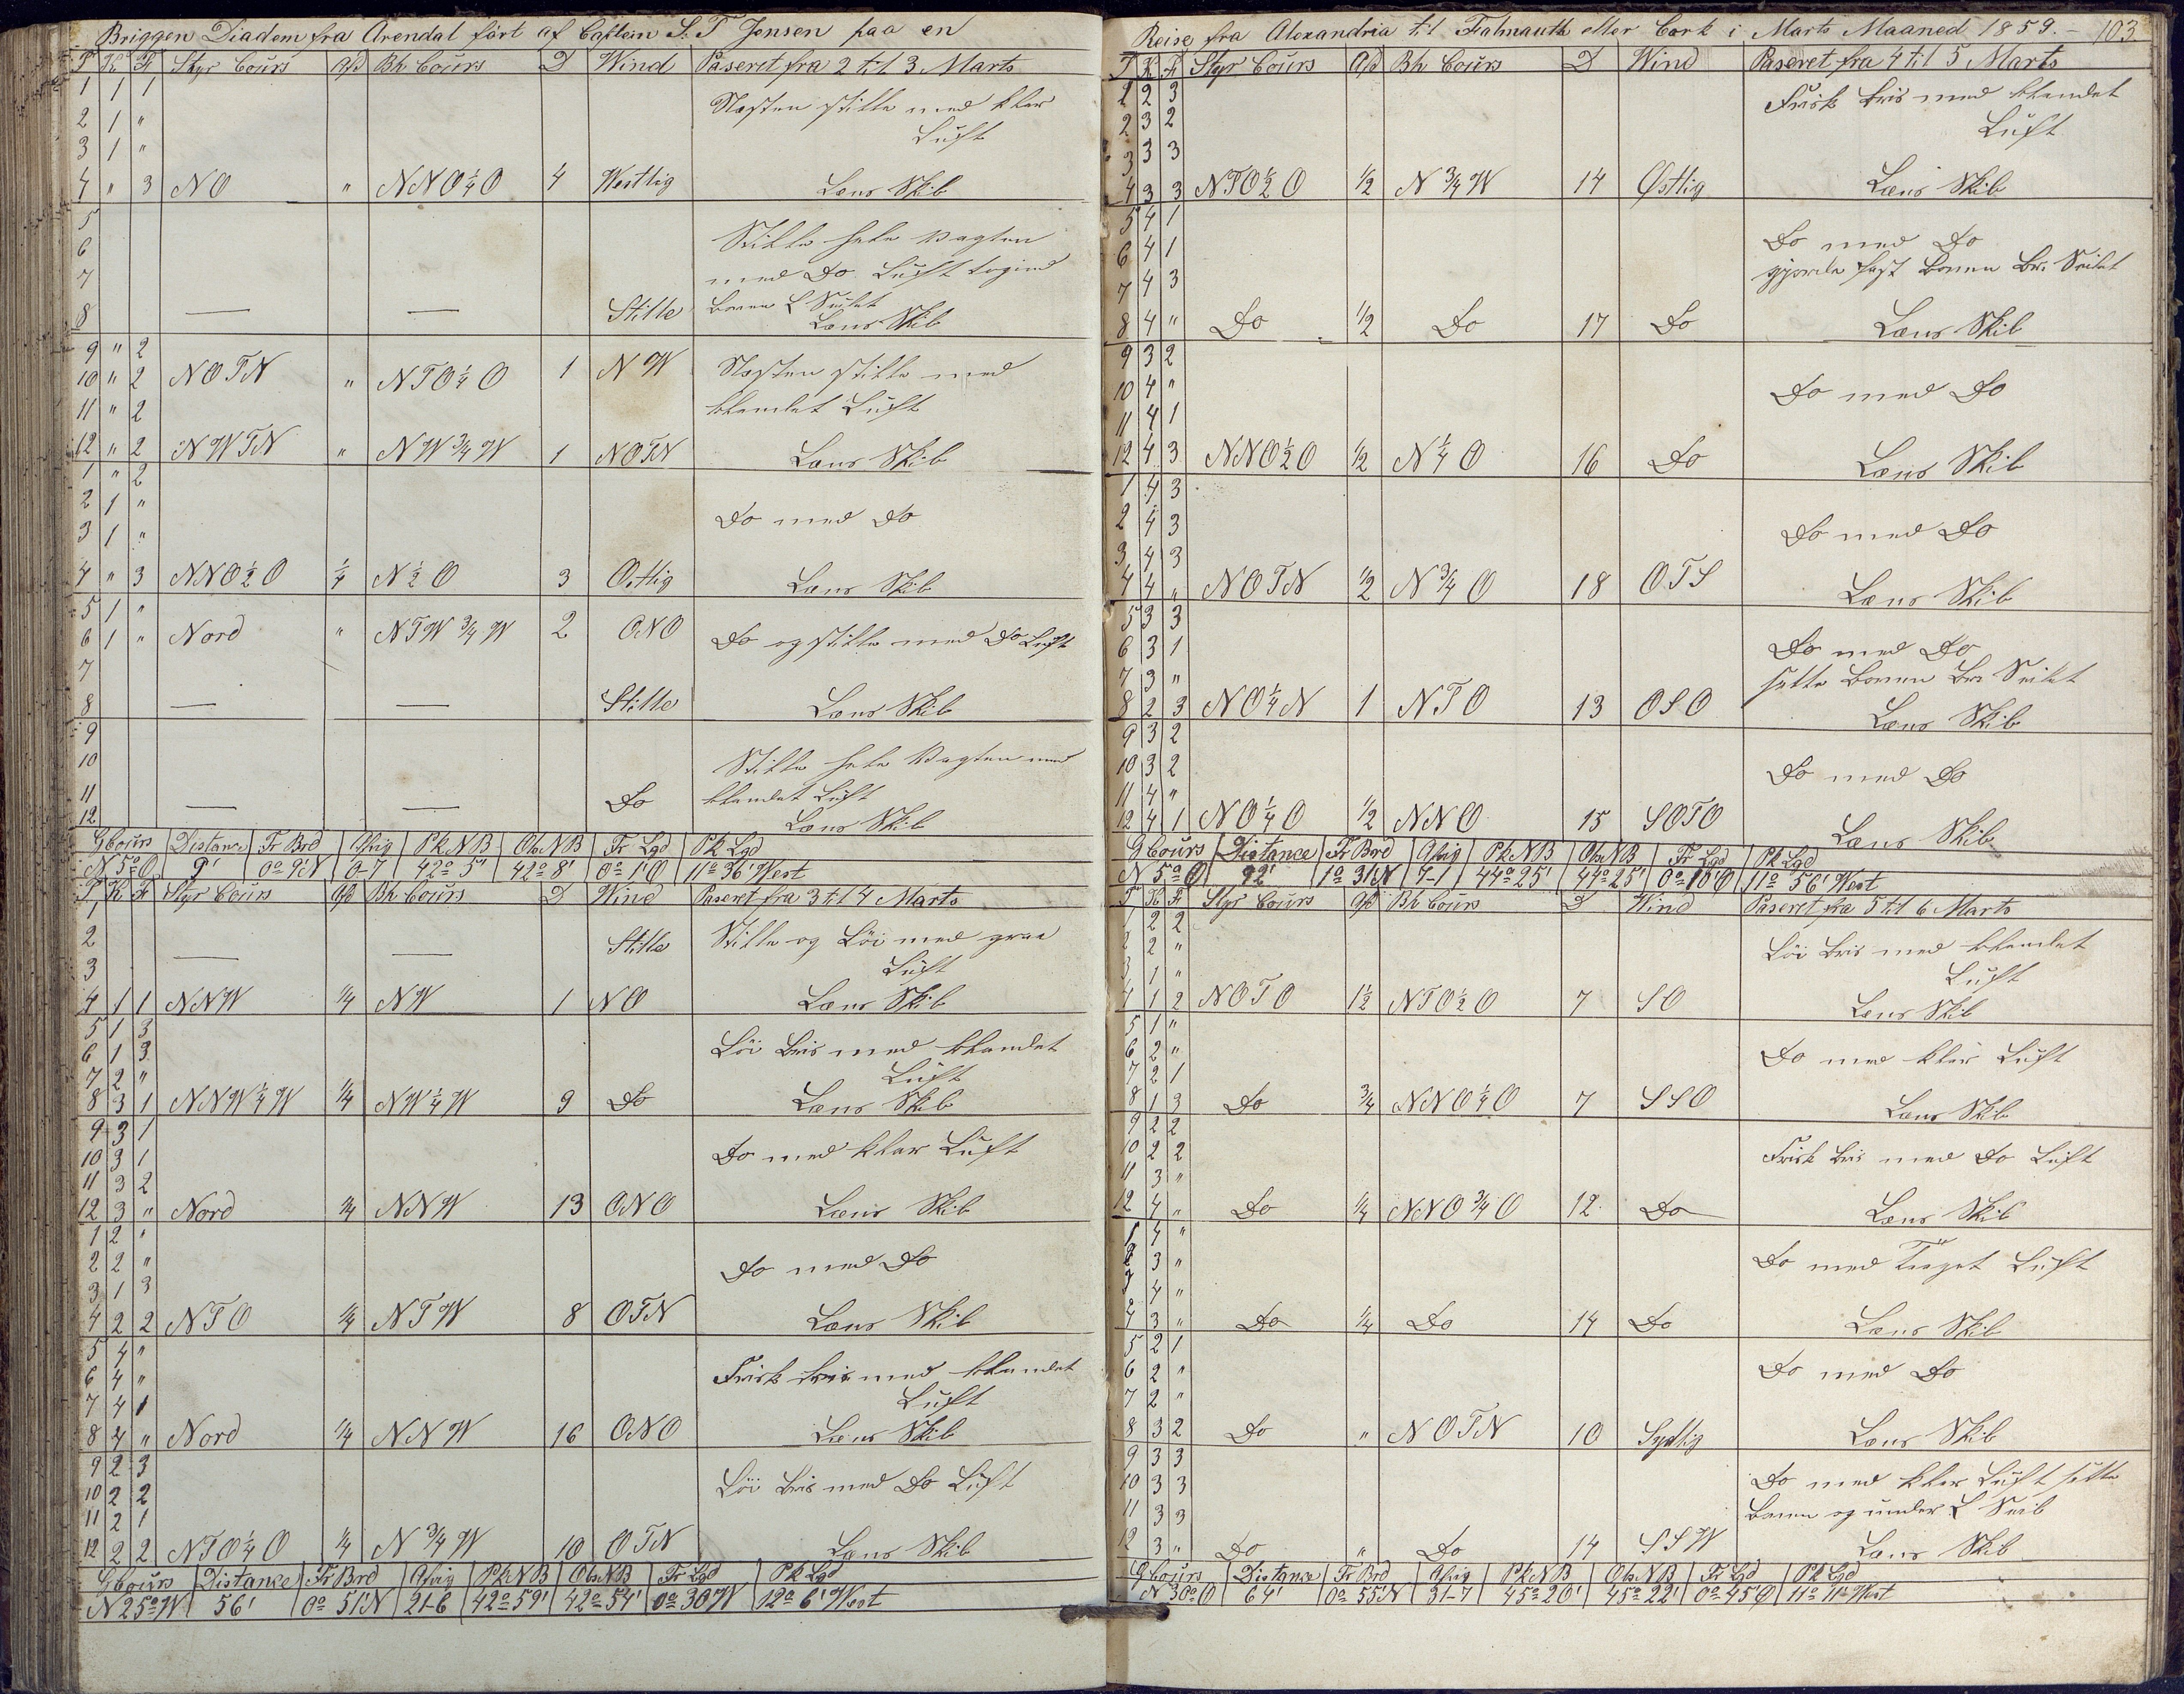 Briggen Diadem fra Arendal fört af Captein S. T Jensen paa en
T K F Styr Cours Afd Bh Cours D Wind Paseret fra 2 til 3 Marts
1 1 1 Næsten stille med klar
2 1 " Luft
3 1 "
4 " 3 NO " NNO¼O 4 Westlig Læns Skib
5 Stille hele Vagten
6 med Do Luft
7
8 — — Stille Læns Skib
9 " 2
10 " 2 NOTN " NTO¼O 1 NW Næsten stille med
11 " 2 blandet Luft
12 " 2 NWTN " NW¾W 1 NOTN Læns Skib
1 " 2
2 1 " Do med Do
3 1 "
4 " 3 NNO½O ¼ N½O 3 Ostlig Læns Skib
5 1 "
6 1 " Nord " NTW¾W 2 ONO Do og stille med Do Luft
7
8 — — Stille Læns Skib
9
10 Stille hele Vagten med
11 — — Do blandet Luft
12 Læns Skib
GCours Distance Fr Brd Afvig Pk NB Obs NB Fr Lgd Pk Lgd
N 5° O 9' 0° 9' N 0-7 42° 5' 42° 8' 0° 1' O 11° 36' West
T K F Styr Cours Afd Bh Cours D Wind Paseret fra 3 til 4 Marts
1
2 Stille Stille og Löi med graa
3 — — Luft
4 1 1 NNW ¼ NW 1 NO Læns Skib
5 1 3
6 1 3 Löi bris med blandet
7 2 " Luft
8 3 1 NNW¼W ¼ NW¼W 9 Do Læns Skib
9 3 1
10 3 1 Do med klar Luft
11 3 2
12 3 " Nord ¼ NNW 13 ONO Læns Skib
1 2 "
2 2 " Do med Do
3 1 3
4 2 2 NTO ¼ NTW 8 OTN Læns Skib
5 4 "
6 4 " Frisk bris med blandet
7 4 1 Luft
8 4 " Nord ¼ NNW 16 ONO Læns Skib
9 2 3
10 2 2 Löi bris med Do Luft
11 2 1
12 2 2 NTO¼O ¼ N¾W 10 OTN Læns Skib
GCours Distance Fr Brd Afvig Pk NB Obs NB Fr Lgd Pk Lgd
N 25° W 56' 0° 51' N 21-6 42° 59' 42° 54' 0° 30 W 12° 6' West
Reise fra Alexandria til Falmauth eller Cork i Marts Maaned 1859. - 103
T K F Styr Cours Afd Bh Cours D Wind Paseret fra 4 til 5 Marts
1 2 3 Frisk bris med blandet
2 3 2 Luft
3 3 3
4 3 3 NTO½O ½ N¾W 14 Østlig Læns Skib
5 4 1
6 4 1 Do med Do
7 4 3 gjorde fast Bomen Br. Seilet
8 4 " Do ½ Do 17 Do Læns Skib
9 3 2
10 4 " Do med Do
11 4 1
12 4 3 NNO½O ½ N¼O 16 Do Læns Skib
1 4 3
2 4 3 Do med Do
3 4 3
4 4 " NOTN ½ N¾O 18 OTS Læns Skib
5 3 3
6 3 1 Do med Do
7 3 " sætte Bomen Br. Seilet
8 2 3 NO¼N 1 NTO 13 OSO Læns Skib
9 3 2
10 3 2 Do med Do
11 4 "
12 4 1 NO¼O ½ NNO 15 SOTO Læns Skib
GCours Distance Fr Brd Afvig Pk NB Obs NB Fr Lgd Pk Lgd
N 5° O 92' 1° 31' N 7-1 44° 25' 44° 25' 0° 10' O 11° 56' West
T K F Styr Cours Afd Bh Cours D Wind Paseret fra 5 til 6 Marts
1 2 2
2 2 " Löi bris med blandet
3 1 " Luft
4 1 2 NOTO 1½ NTO½O 7 SO Læns Skib
5 1 "
6 2 " Do med klar Luft
7 2 1
8 1 3 Do ¾ NNO¼O 7 SSO Læns Skib
9 2 2
10 2 2 Frisk bris med Do Luft
11 3 "
12 4 " Do ¼ NNO¾O 12 Do Læns Skib
1 4 "
2 3 " Do med Luft
3 4 "
4 3 " Do ¼ Do 14 Do Læns Skib
5 2 1
6 2 " Do med Do
7 2 "
8 3 2 Do " NOTN 10 Sydlig Læns Skib
9 3 3
10 3 3 Do med klar Luft sætte
11 3 3 Bomen og under L Seil
12 3 " Do " Do 14 SSW Læns Skib
GCours Distance Fr Brd Afvig Pk NB Obs NB Fr Lgd Pk Lgd
N 30° O 64' 0° 55' N 31-7 45° 20' 45° 22' 0° 45' O 11° 11' West